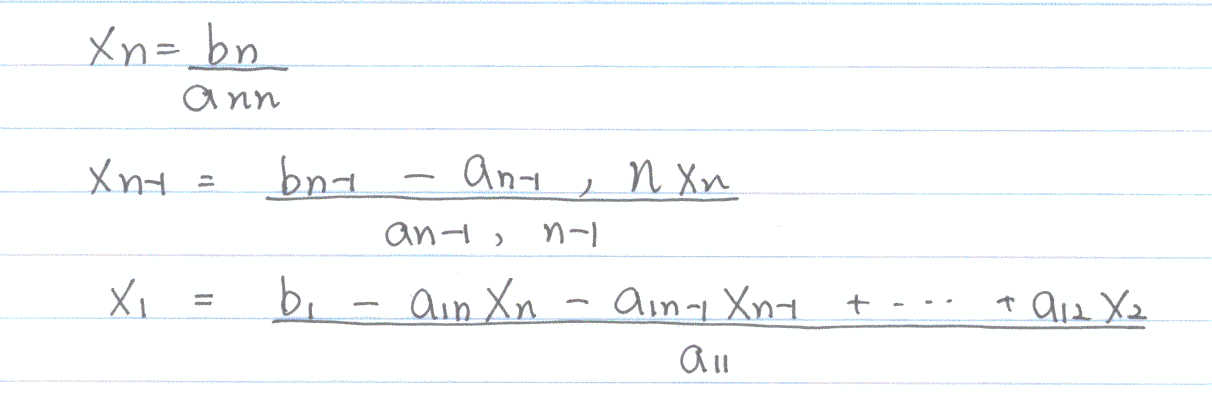 Xn = bn / ann
Xn-1 = bn-1 - an-1, n Xn / an-1, n-1
X1 = b1 - a1n Xn - a1n-1 Xn-1 + - ... + a12 X2 / a11